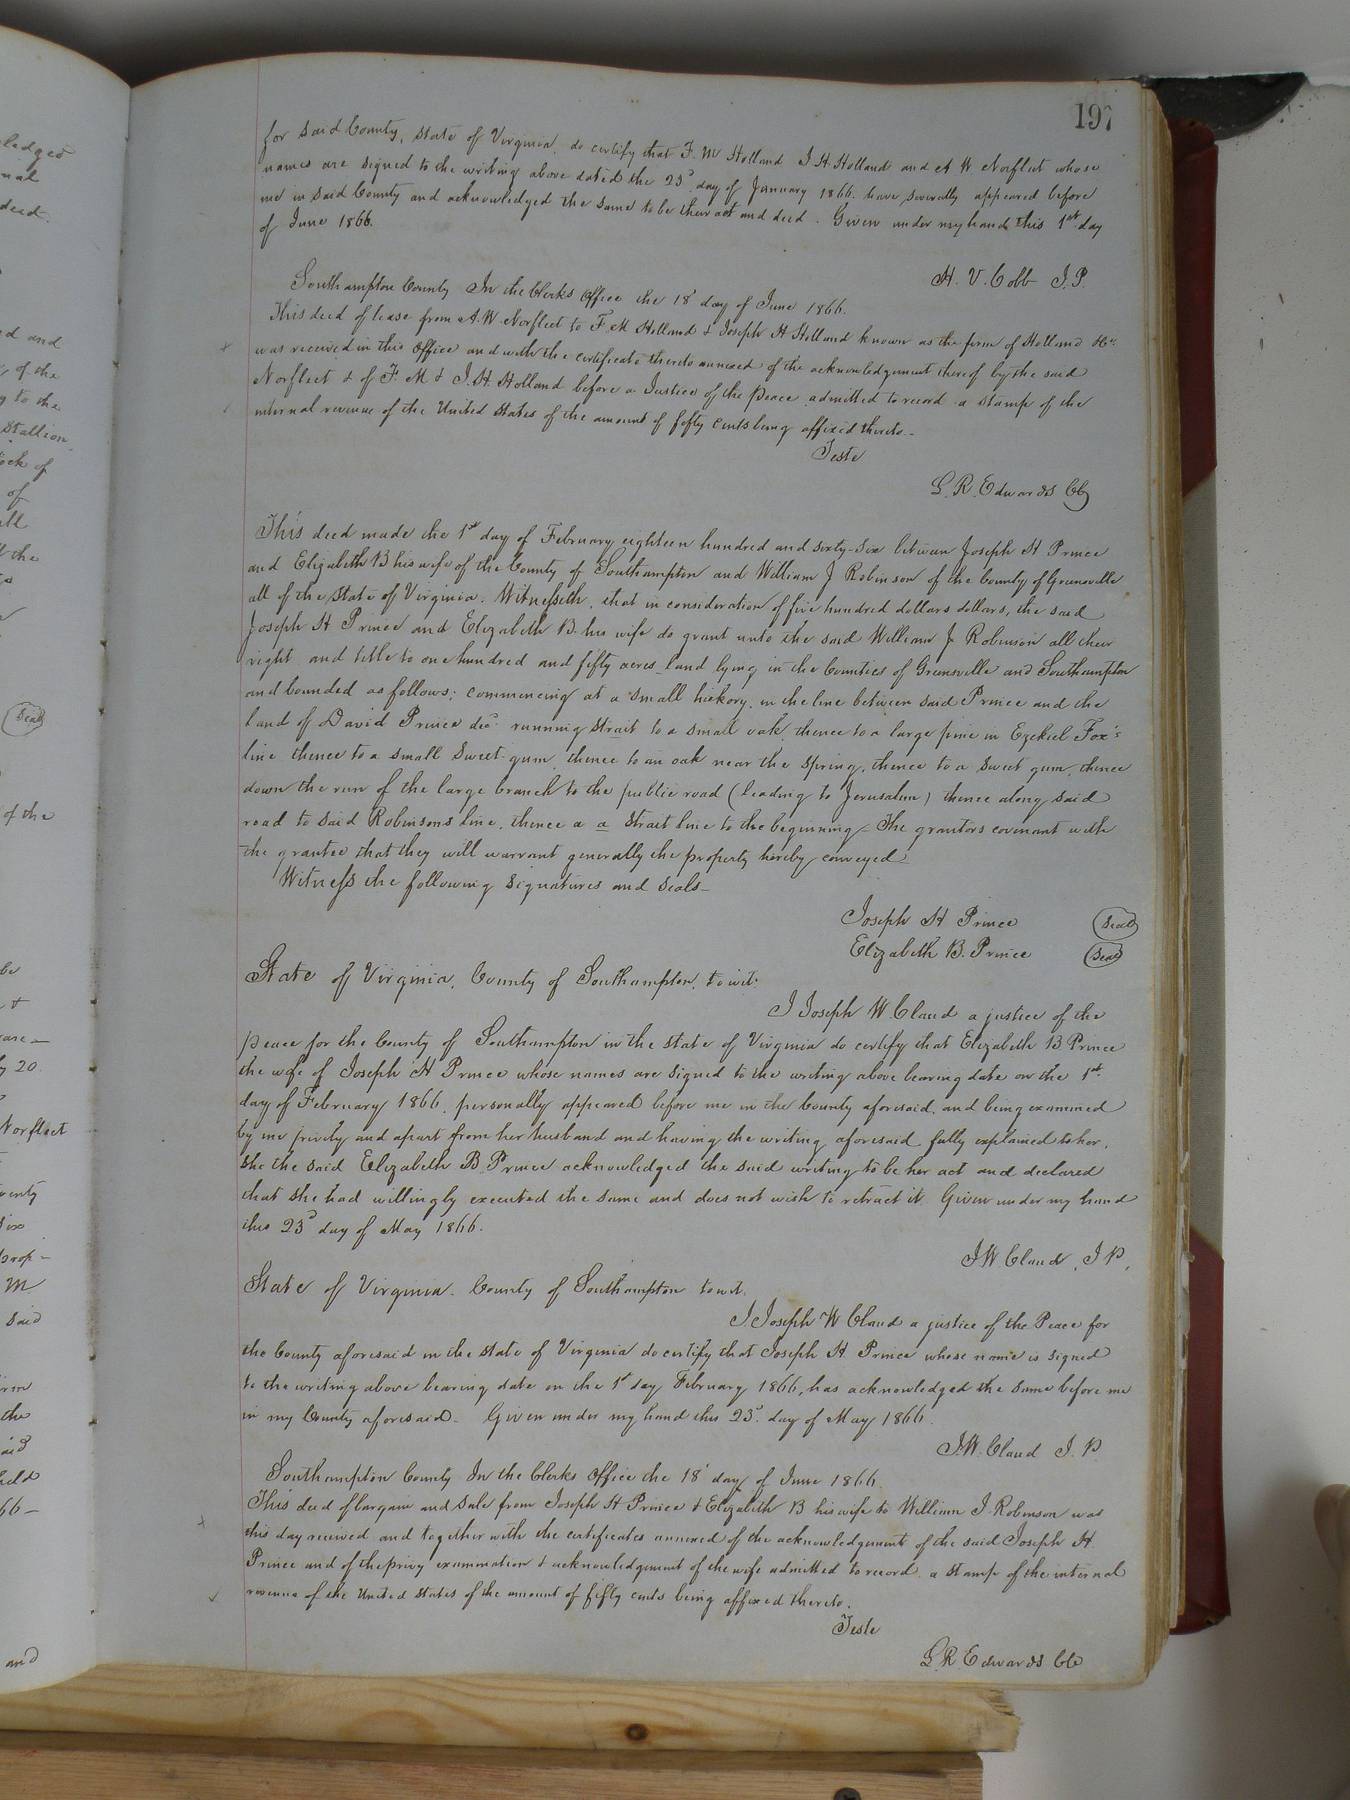 197
for said County, State of Virginia, do certify that F. M Holland J. H. Holland and A W Norfleet whose
names are signed to the writing above dated the 23d day of January 1866. have severally appeared before
me in said County and acknowledged the same to be their act and deed. Given under my hand this 1st day
of June 1866.
H. V. Cobb J.P.
Southampton County In the Clerks Office the 18' day of June 1866.
This deed of lease from A. W. Norfleet to F. M Holland & Joseph H Holland known as the firm of Holland & Bro
was received in this Office and with the certificate thereto annexed of the acknowledgement thereof by the said
Norfleet & of F. M & J. H. Holland before a Justice of the peace admitted to record a stamp of the
internal revenue of the United States of the amount of fifty cents being affixed thereto -
Teste
L. R. Edwards Clk
This deed made the 1st day of February eighteen hundred and sixty-six between Joseph H Prince
and Elizabeth B his wife of the County of Southampton and William J Robinson of the County of Greensville
all of the State of Virginia. Witnesseth, that in consideration of five hundred dollars dollars, the said
Joseph H Prince and Elizabeth B. his wife do grant unto the said William J Robinson all their
right and title to one hundred and fifty acres land lying in the Counties of Greensville and Southampton
and bounded as follows; commencing at a small hickory, in the line between said Prince and the
land of David Prince dec'd running strait to a small oak, thence to a large pine in Ezekiel Fox's
line thence to a small sweet-gum, thence to an oak near the spring, thence to a sweet gum, thence
down the run of the large branch to the public road (leading to Jerusalem) thence along said
road to said Robinsons line, thence a a strait line to the beginning - The grantors covenant with
the grantee that they will warrant generally the property hereby conveyed
Witness the following signatures and seals -
Joseph H Prince (Seal)
Elizabeth B. Prince (Seal)
State of Virginia, County of Southampton, to wit:
I Joseph W Claud a justice of the
peace for the County of Southampton in the State of Virginia do certify that Elizabeth B Prince
the wife of Joseph H Prince whose names are signed to the writing above bearing date on the 1st
day of February 1866, personally appeared before me in the County aforesaid, and being examined
by me privily and apart from her husband and having the writing aforesaid fully explained to her,
she the said Elizabeth B Prince acknowledged the said writing to be her act and declared
that she had willingly executed the same and does not wish to retract it Given under my hand
this 23d day of May 1866.
J W Claud, J P.
State of Virginia. County of Southampton to wit.
I. Joseph W Claud a justice of the Peace for
the County aforesaid in the State of Virginia do certify that Joseph H. Prince whose name is signed
to the writing above bearing date on the 1st day February 1866, has acknowledged the same before me
in my County aforesaid. Given under my hand this 23d. day of May 1866.
J. W. Claud J. P.
Southampton County In the Clerks Office the 18' day of June 1866.
This deed of bargain and sale from Joseph H Prince & Elizabeth B his wife to William J. Robinson was
this day received and together with the certificates annexed of the acknowledgment of the said Joseph H.
Prince and of the privy examination & acknowledgment of the wife admitted to record a stamp of the internal
revenue of the United States of the amount of fifty cents being affixed thereto.
Teste
L. R Edwards Clk